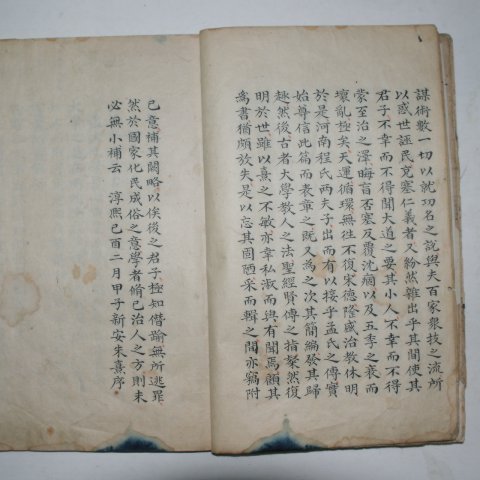 謀術數一切以就功名之說與夫百家衆技之流所
以惑世誣民充塞仁義者又紛然雜出乎其間使其
君子不幸而不得聞大道之要其小人不幸而不得
蒙至治之澤晦盲否塞反覆沈痼以及五季之衰而
壞亂極矣天運循環無往不復宋德隆盛治敎休明
於是河南程氏兩夫子出而有以接乎孟氏之傳實
始尊信此篇而表章之旣又爲之次其簡編發其歸
趣然後古者大學敎人之法聖經賢傳之指粲然復
明於世雖以熹之不敏亦幸私淑而與有聞焉顧其
爲書猶頗放失是以忘其固陋采而輯之間亦竊附
己意補其闕略以俟後之君子極知僭踰無所逃罪
然於國家化民成俗之意學者脩己治人之方則未
必無小補云 淳熙己酉二月甲子新安朱熹序